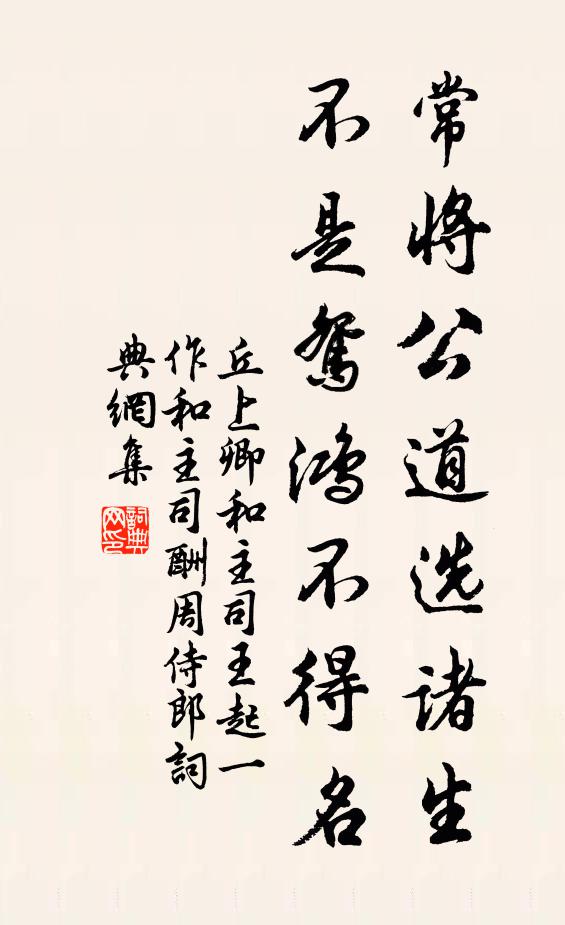 常将公道选诸生
不是鸳鸿不得名
丘上卿和主司王起一
作和主司酬周侍郎詞
典網集
詞典网印